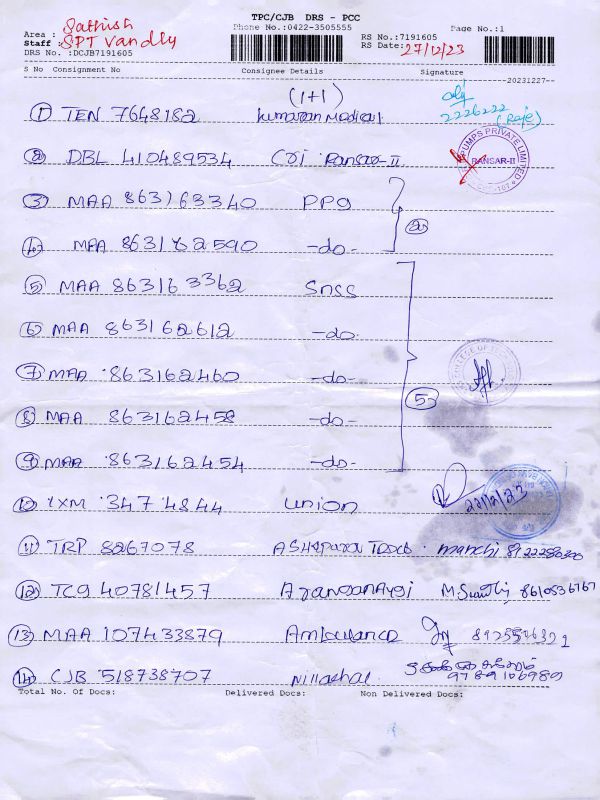 TPC/CJB DRS - PCC
Phone No.:0422-3505555 Page No.:1
Area : Sathish RS No.:7191605
Staff : SPT Vandly RS Date: 27/12/23
DRS No. :DCJB7191605
S No Consignment No Consignee Details Signature
20231227
(1+1)
① TEN 7648182 kumaran Medical 2226222 (Raje)
② DBL 410489534 CRI Ransar-II PUMPS PRIVATE LIMITED RANSAR-II
③ MAA 863163340 PPG
④ MAA 863162590 -do- ②
⑤ MAA 863163362 SNSS
⑥ MAA 863162612 -do-
⑦ MAA 863162460 -do- COLLEGE OF
⑧ MAA 863162458 -do- ⑤
⑨ MAA 863162454 -do-
⑩ 347 4844 union
⑪ TRP 8267078
⑫ TCG 40781457 8610536767
⑬ MAA 107433879 Ambulance
⑭ CJB 518738707 9789106989
Total No. Of Docs: Delivered Docs: Non Delivered Docs: